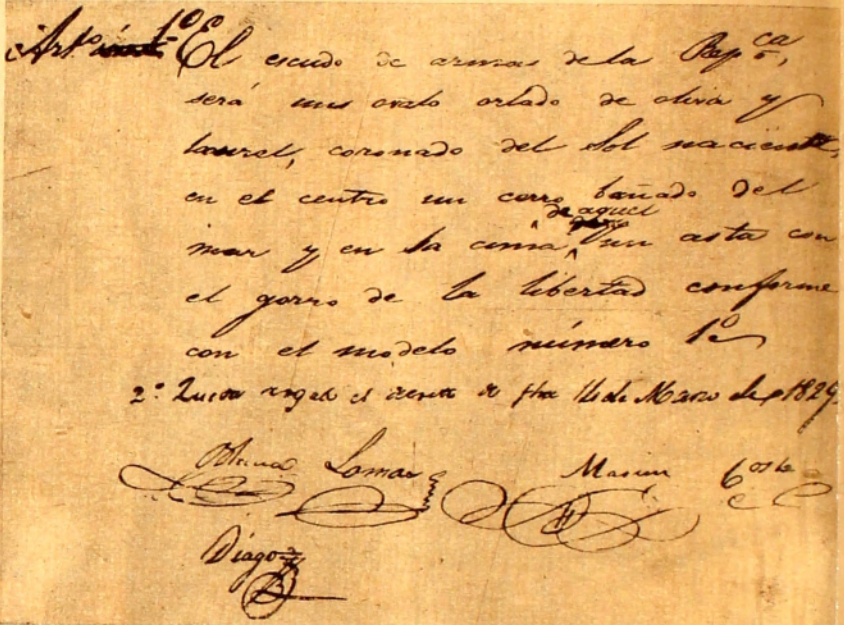 Arto 1º El escudo de armas de la Repca,
será un ovalo orlado de oliva y
laurel, coronado del Sol naciente,
en el centro un cerro bañado del
mar y en la cima de aquel un asta con
el gorro de la libertad conforme
con el modelo número 1º
2º Queda el de 14 de Marzo de 1829
Lomas
Diago